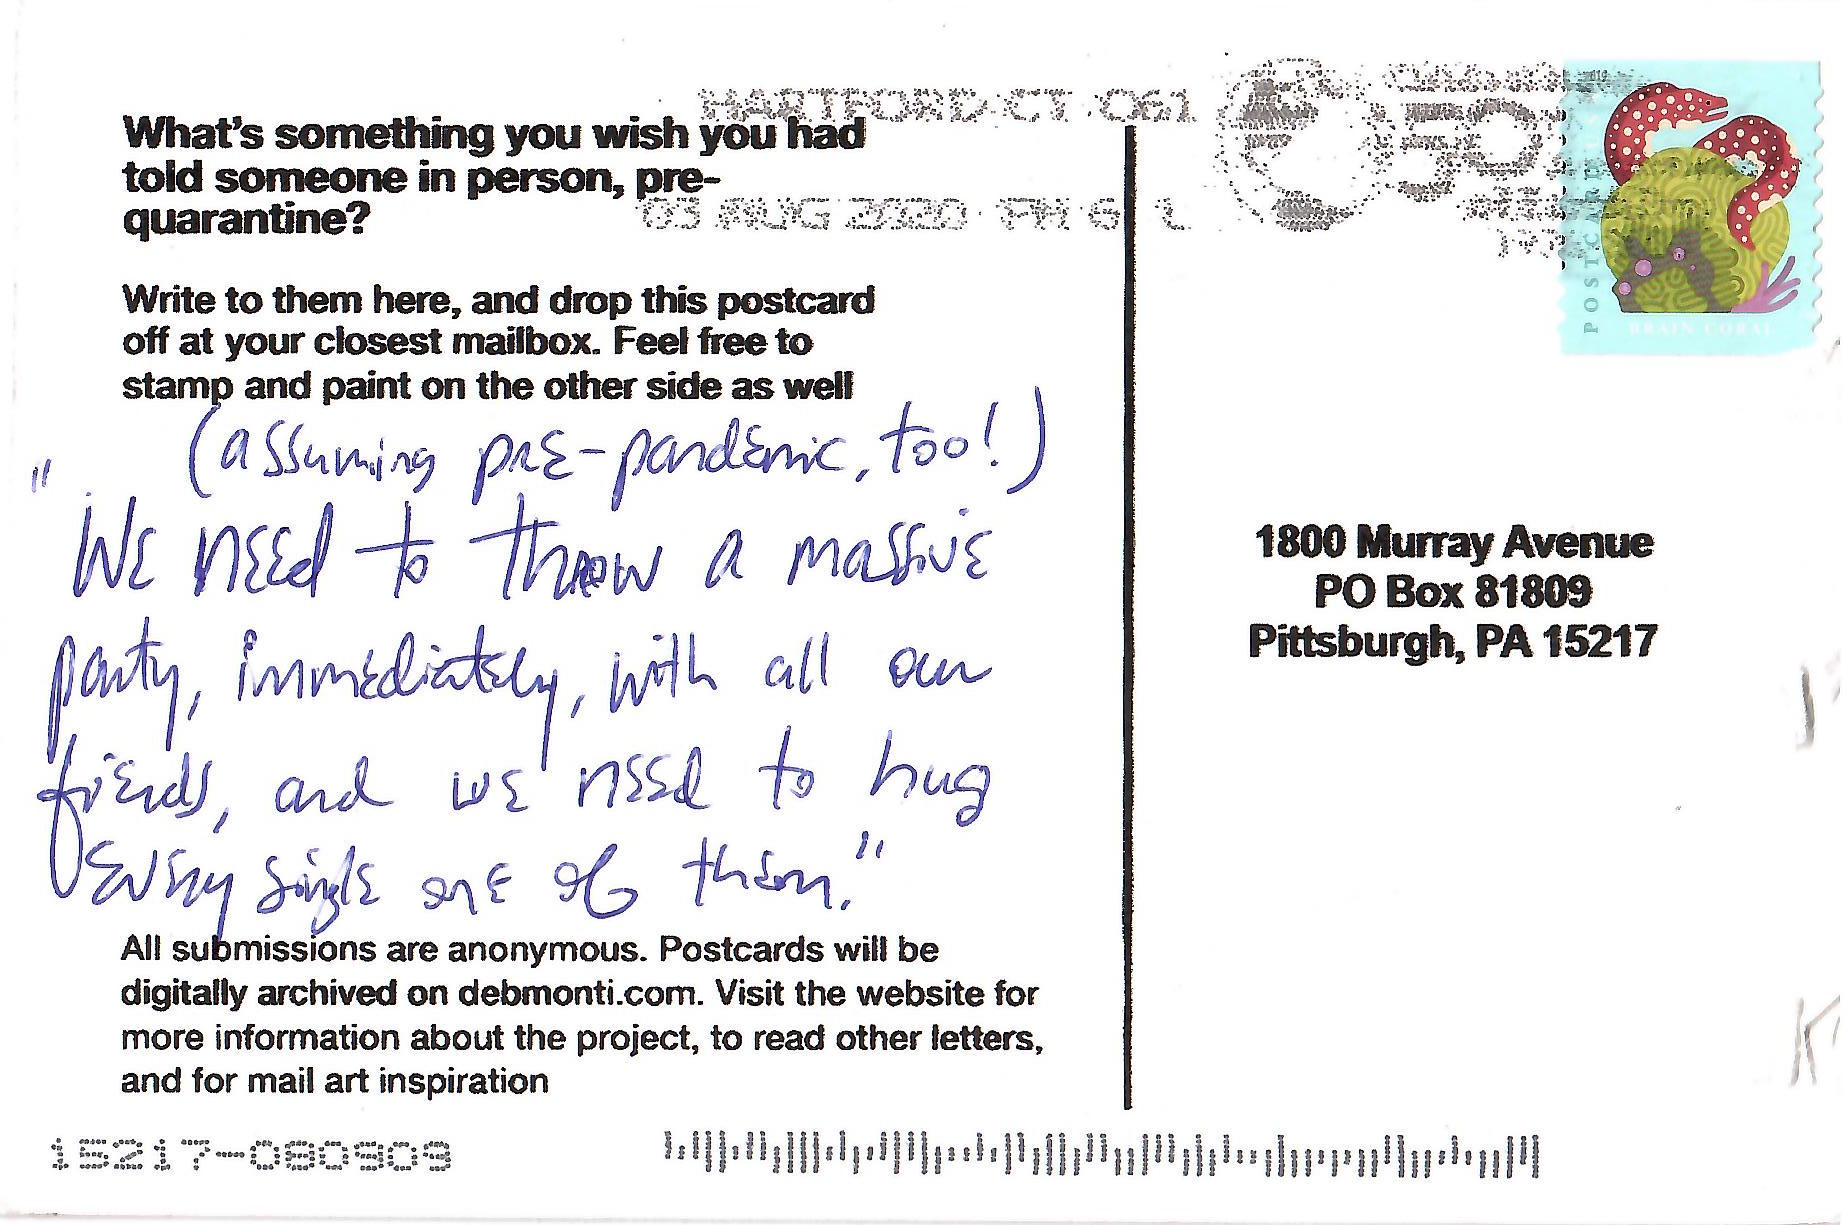 HARTFORD CT 061
03 AUG 2020 PM 6 L
What's something you wish you had
told someone in person, pre-
quarantine?
Write to them here, and drop this postcard
off at your closest mailbox. Feel free to
stamp and paint on the other side as well
(assuming pre-pandemic, too!)
"We need to throw a massive
party, immediately, with all our
friends, and we need to hug
every single one of them."
All submissions are anonymous. Postcards will be
digitally archived on debmonti.com. Visit the website for
more information about the project, to read other letters,
and for mail art inspiration
15217-080909
POSTCARD
BRAIN CORAL
1800 Murray Avenue
PO Box 81809
Pittsburgh, PA 15217